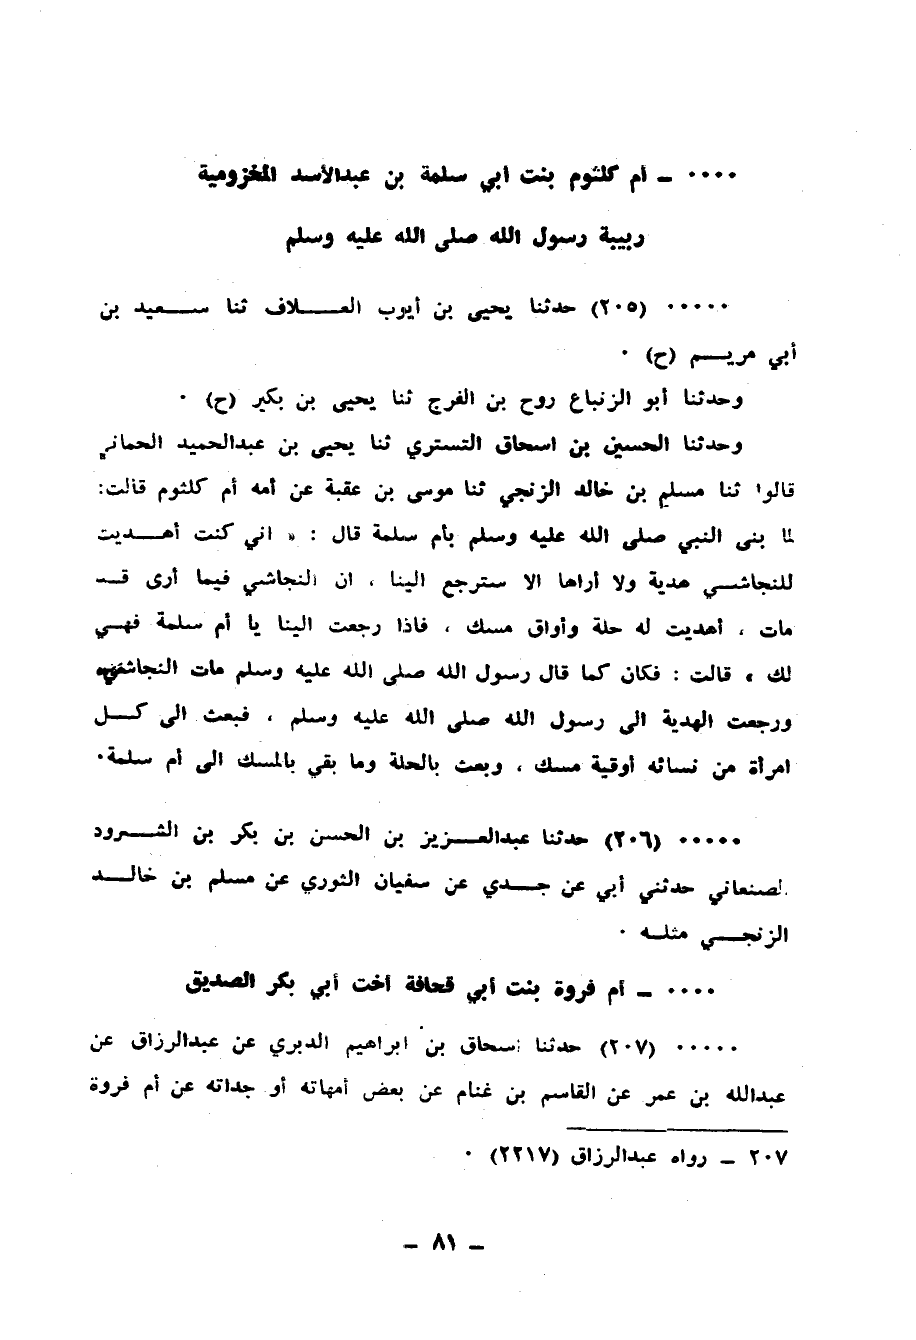 ٠٠٠٠ ــ أم كلثوم بنت أبي سلمة بن عبدالأسد المخزومية
ربيبة رسول الله صلى الله عليه وسلم
٠٠٠٠٠ (٢٠٥) حدثنا يحيى بن أيوب العلاف ثنا سعيد بن
أبي مريم (ح) ٠
وحدثنا أبو الزنباع روح بن الفرج ثنا يحيى بن بكير (ح) ٠
وحدثنا الحسين بن اسحاق التستري ثنا يحيى بن عبدالحميد الحماني
قالوا ثنا مسلم بن خالد الزنجي ثنا موسى بن عقبة عن أمه أم كلثوم قالت:
لما بنى النبي صلى الله عليه وسلم بأم سلمة قال : « اني كنت أهديت
للنجاشي هدية ولا أراها الا سترجع الينا ، ان النجاشي فيما أرى قد
مات ، أهديت له حلة وأواق مسك ، فاذا رجعت الينا يا أم سلمة فهي
لك ، قالت : فكان كما قال رسول الله صلى الله عليه وسلم مات النجاشي
ورجعت الهدية الى رسول الله صلى الله عليه وسلم ، فبعث الى كل
امرأة من نسائه أوقية مسك ، وبعث بالحلة وما بقي بالمسك الى أم سلمة٠
٠٠٠٠٠ (٢٠٦) حدثنا عبدالعزيز بن الحسن بن بكر بن الشرود
الصنعاني حدثني أبي عن جدي عن سفيان الثوري عن مسلم بن خالد
الزنجي مثله ٠
٠٠٠٠ ــ أم فروة بنت أبي قحافة أخت أبي بكر الصديق
٠٠٠٠٠ (٢٠٧) حدثنا اسحاق بن ابراهيم الدبري عن عبدالرزاق عن
عبدالله بن عمر عن القاسم بن غنام عن بعض أمهاته أو جداته عن أم فروة
٢٠٧ ــ رواه عبدالرزاق (٢٢١٧) ٠
ــ ٨١ ــ